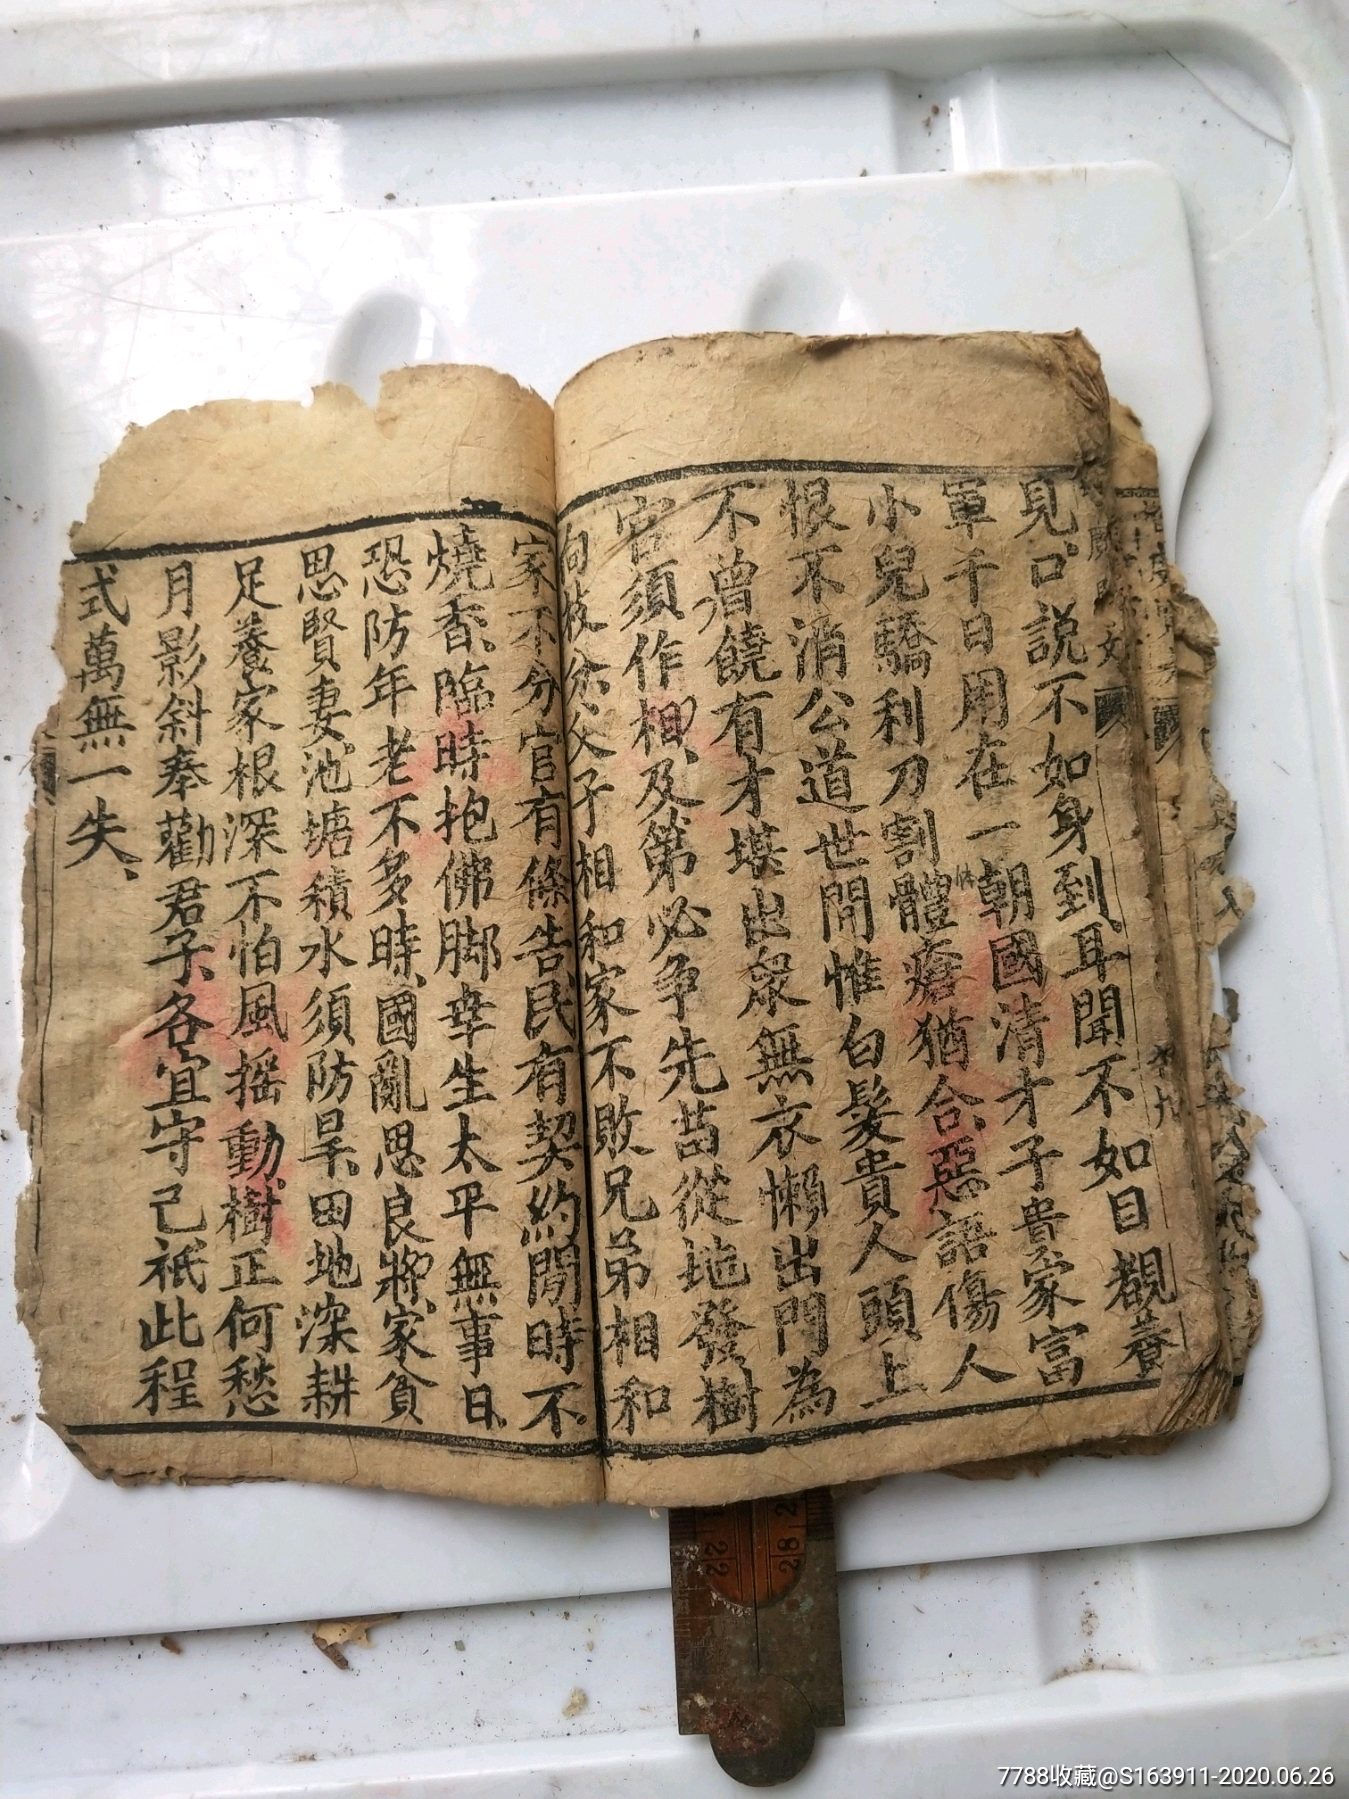 見口說不如身到耳聞不如目觀養
軍千日用在一朝國清才子貴家富
小兒驕利刀割體瘡猶合惡語傷人
恨不消公道世間惟白髮貴人頭上
不曾饒有才堪出眾無衣懶出門為
官須作相及第必争先苗從地發樹
向枝分父子相和家不敗兄弟相和
家不分官有條告民有契約閒時不
燒香臨時抱佛脚幸生太平無事日
恐防年老不多時國亂思良將家貧
思賢妻池塘積水須防旱田地深耕
足養家根深不怕風摇動樹正何愁
月影斜奉勸君子各宜守己祇此程
式萬無一失
7788收藏@S163911-2020.06.26